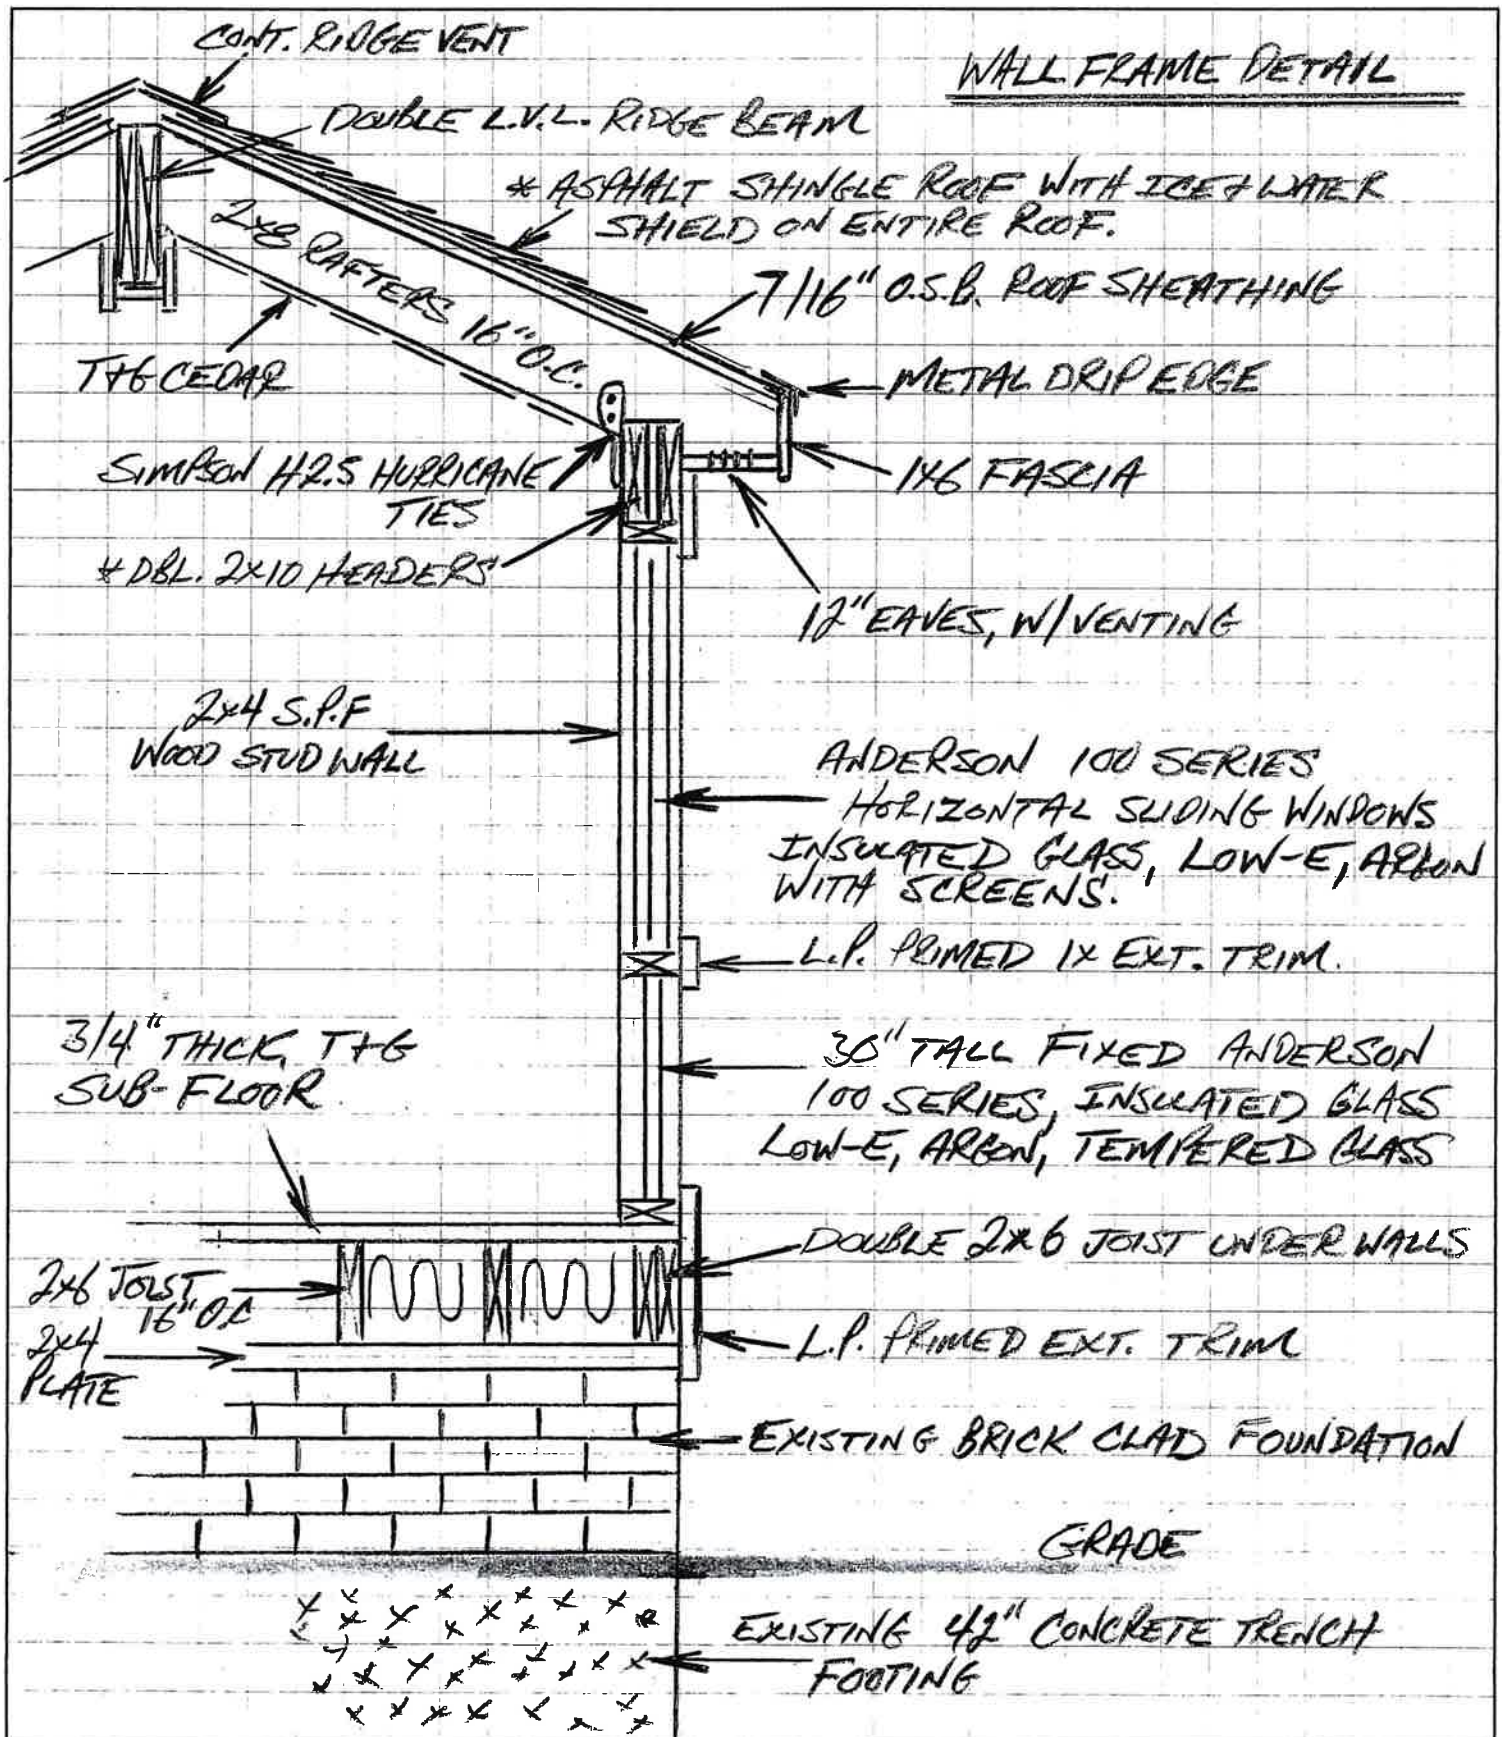 CONT. RIDGE VENT
WALL FRAME DETAIL
DOUBLE L.V.L. RIDGE BEAM
* ASPHALT SHINGLE ROOF WITH ICE & WATER
SHIELD ON ENTIRE ROOF.
2x8 RAFTERS 16" O.C.
7/16" O.S.B. ROOF SHEATHING
T+G CEDAR
METAL DRIP EDGE
SIMPSON H2.5 HURRICANE
TIES
1x6 FASCIA
* DBL. 2x10 HEADERS
12" EAVES, W/VENTING
2x4 S.P.F
WOOD STUD WALL
ANDERSON 100 SERIES
HORIZONTAL SLIDING WINDOWS
INSULATED GLASS, LOW-E, ARGON
WITH SCREENS.
L.P. PRIMED 1x EXT. TRIM.
3/4" THICK, T+G
SUB-FLOOR
36" TALL FIXED ANDERSON
100 SERIES, INSULATED GLASS
LOW-E, ARGON, TEMPERED GLASS
DOUBLE 2x6 JOIST UNDER WALLS
2x6 JOIST
16" O.C
2x4
PLATE
L.P. PRIMED EXT. TRIM
EXISTING BRICK CLAD FOUNDATION
GRADE
EXISTING 42" CONCRETE TRENCH
FOOTING